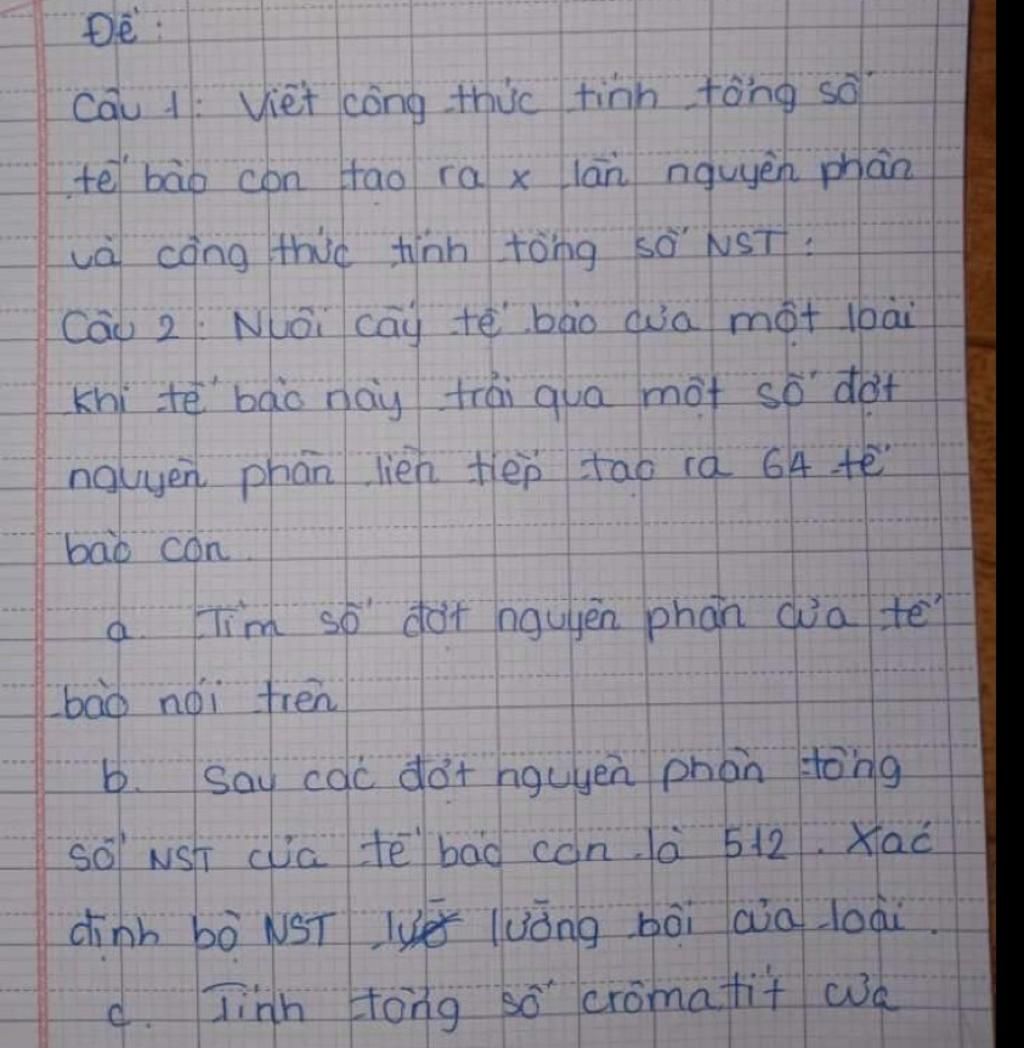 Đề:
Câu 1: Viết công thức tính tổng số
tế bào con tạo ra x lần nguyên phân
và công thức tính tổng số NST:
Câu 2: Nuôi cấy tế bào của một loài
khi tế bào này trải qua một số đợt
nguyên phân liên tiếp tạo ra 64 tế
bào con.
a. Tìm số đợt nguyên phân của tế
bào nói trên
b. Sau các đợt nguyên phân tổng
số NST của tế bào con là 512. Xác
định bộ NST lưỡng bội của loài.
c. Tính tổng số crômatit của